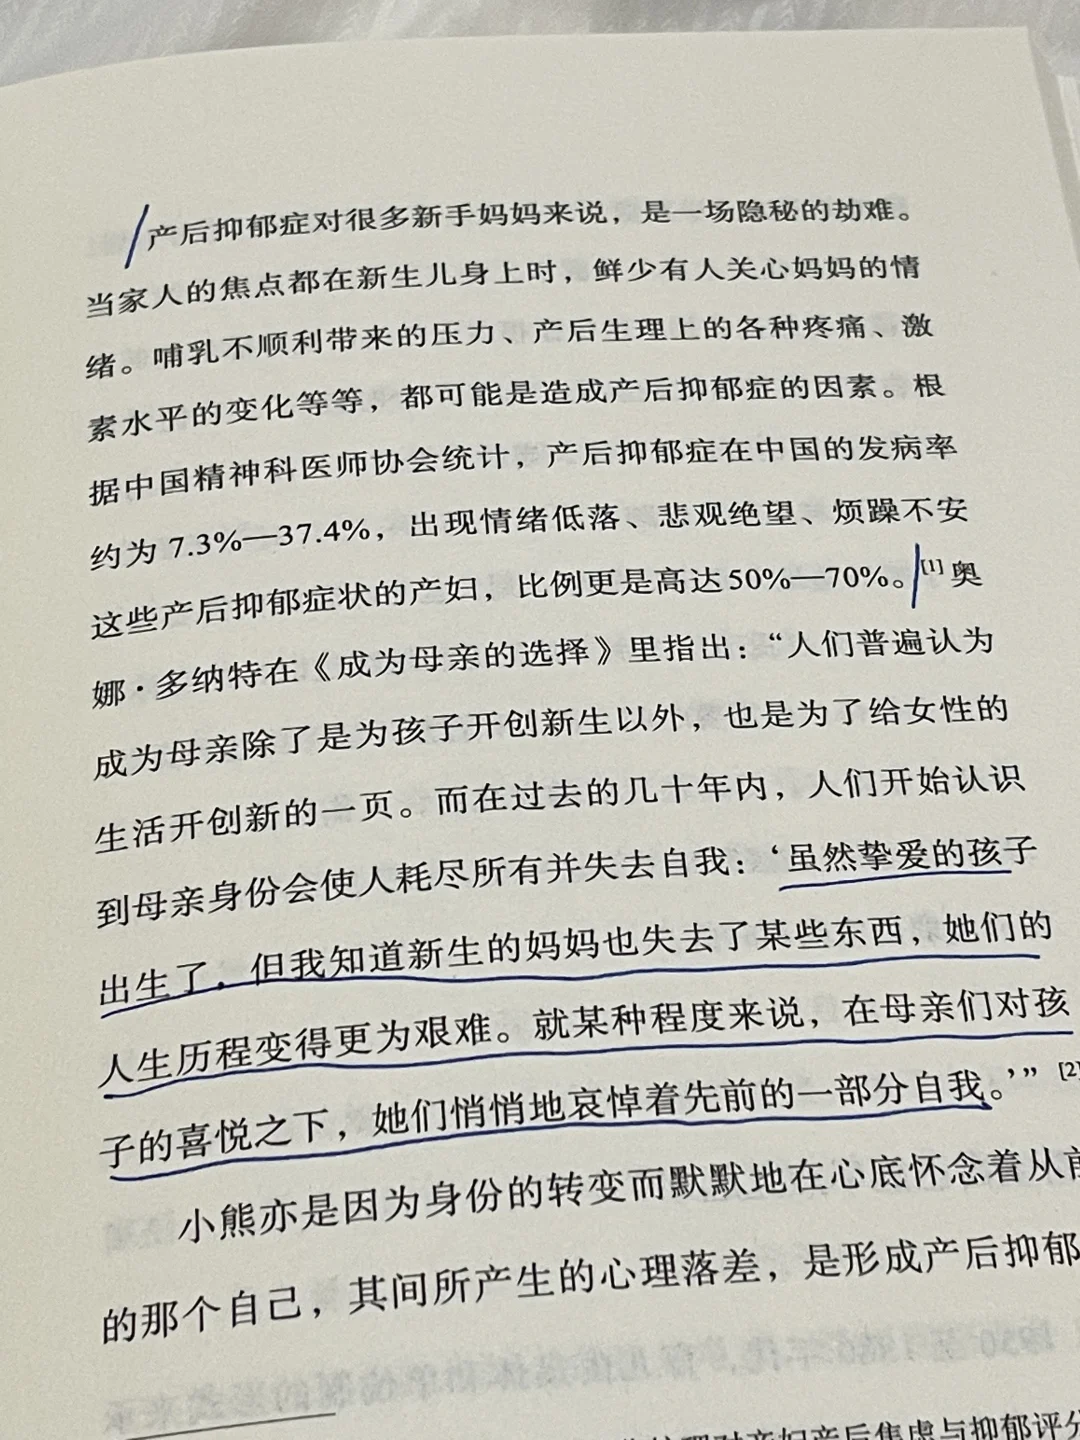 产后抑郁症对很多新手妈妈来说，是一场隐秘的劫难。
当家人的焦点都在新生儿身上时，鲜少有人关心妈妈的情
绪。哺乳不顺利带来的压力、产后生理上的各种疼痛、激
素水平的变化等等，都可能是造成产后抑郁症的因素。根
据中国精神科医师协会统计，产后抑郁症在中国的发病率
约为 7.3%—37.4%，出现情绪低落、悲观绝望、烦躁不安
这些产后抑郁症状的产妇，比例更是高达50%—70%。[1] 奥
娜·多纳特在《成为母亲的选择》里指出：“人们普遍认为
成为母亲除了是为孩子开创新生以外，也是为了给女性的
生活开创新的一页。而在过去的几十年内，人们开始认识
到母亲身份会使人耗尽所有并失去自我：‘虽然挚爱的孩子
出生了，但我知道新生的妈妈也失去了某些东西，她们的
人生历程变得更为艰难。就某种程度来说，在母亲们对孩
子的喜悦之下，她们悄悄地哀悼着先前的一部分自我。’” [2]
小熊亦是因为身份的转变而默默地在心底怀念着从前
的那个自己，其间所产生的心理落差，是形成产后抑郁
对产妇产后焦虑与抑郁评分